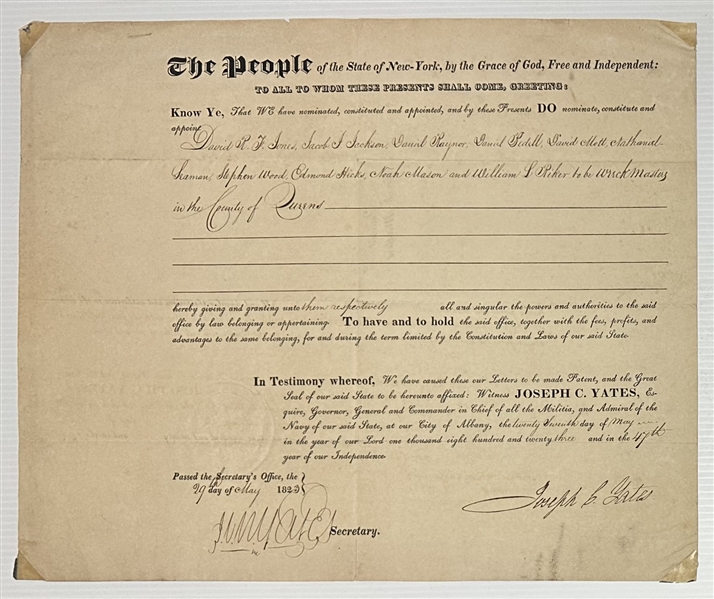 The People of the State of New-York, by the Grace of God, Free and Independent:
TO ALL TO WHOM THESE PRESENTS SHALL COME, GREETING:
Know Ye, That WE have nominated, constituted and appointed, and by these Presents DO nominate, constitute and
appoint David R. F. Jones, Jacob S Jackson, Daniel Raynor, Daniel Bedell, David Mott, Nathaniel
Seaman, Stephen Wood, Edmond Hicks, Noah Mason and William L Riker to be Wreck Masters
in the County of Queens
hereby giving and granting unto them respectively all and singular the powers and authorities to the said
office by law belonging or appertaining. To have and to hold the said office, together with the fees, profits, and
advantages to the same belonging, for and during the term limited by the Constitution and Laws of our said State.
In Testimony whereof, We have caused these our Letters to be made Patent, and the Great
Seal of our said State to be hereunto affixed: Witness JOSEPH C. YATES, Es-
quire, Governor, General and Commander in Chief of all the Militia, and Admiral of the
Navy of our said State, at our City of Albany, the twenty seventh day of May
in the year of our Lord one thousand eight hundred and twenty three and in the 47th
year of our Independence.
Passed the Secretary's Office, the
29th day of May 1823
Joseph C. Yates
Secretary.